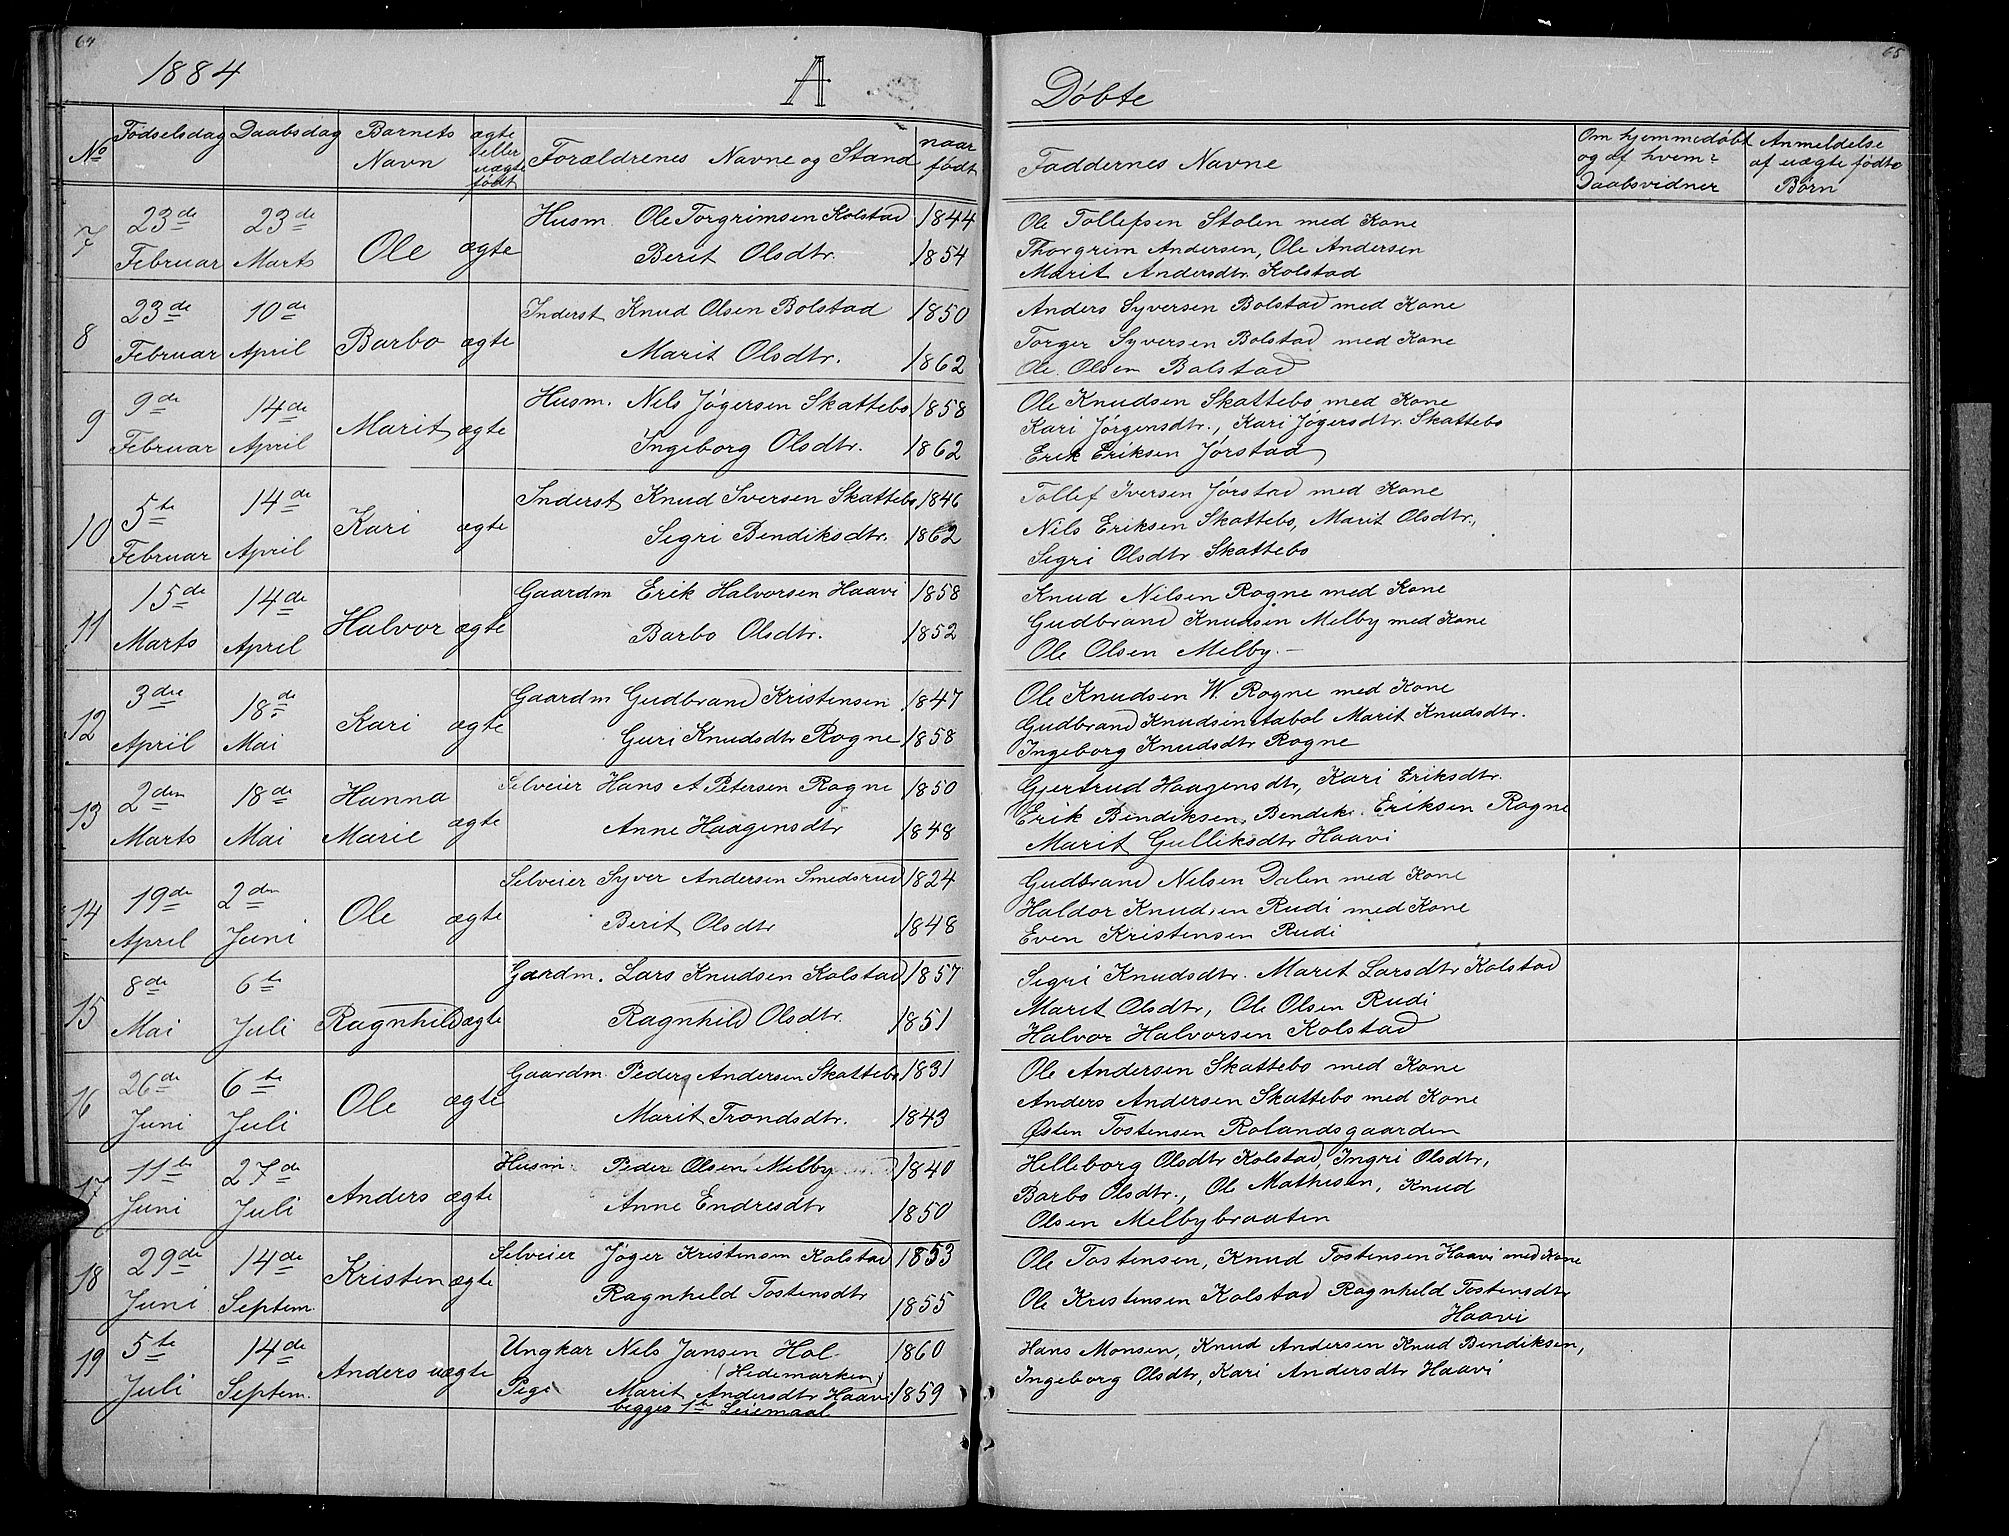 64
1884 A
No Fødselsdag Daabsdag Barnets Navn ægte eller uægte født Forældrenes Navne og Stand naar født
7 23de Februar 23de Marts Ole ægte Husm. Ole Torgrimsen Kolstad 1844
Berit Olsdtr. 1854
8 23de Februar 10de April Barbo ægte Inderst Knud Olsen Bolstad 1850
Marit Olsdtr. 1862
9 9de Februar 14de April Marit ægte Husm. Nils Jøgersen Skattebo 1858
Ingeborg Olsdtr. 1862
10 5te Februar 14de April Kari ægte Inderst Knud Iversen Skattebo 1846
Segri Bendiksdtr. 1862
11 15de Marts 14de April Halvor ægte Gaardm Erik Halvorsen Haavi 1858
Barbo Olsdtr. 1852
12 3die April 18de Mai Kari ægte Gaardm Gudbrand Kristensen 1847
Guri Knudsdtr Rogne 1858
13 2den Marts 18de Mai Hanna Marie ægte Selveier Hans A Petersen Rogne 1850
Anne Haagensdtr 1848
14 19de April 2den Juni Ole ægte Selveier Syver Andersen Smedsrud 1824
Berit Olsdtr 1848
15 8de Mai 6te Juli Ragnhild ægte Gaardm. Lars Knudsen Kolstad 1857
Ragnhild Olsdtr. 1851
16 26de Juni 6te Juli Ole ægte Gaardm. Peder Andersen Skattebo 1831
Marit Trondsdtr. 1843
17 11te Juni 27de Juli Anders ægte Husm. Peder Olsen Melby 1840
Anne Endresdtr 1850
18 29de Juni 14de Septem. Kristen ægte Selveier Jøger Kristensen Kolstad 1853
Ragnheld Tostensdtr 1855
19 5te Juli 14de Septem. Anders uægte Ungkar Nils Jansen Hol 1860
(Hedemarken)
Pige Marit Andersdtr Haavi 1859
begges 1te Leiemaal
65
Døbte
Faddernes Navne Om hjemmedøbt og af hvem? Daabsvidner Anmeldelse af uægte fødte Børn
Ole Tollefsen Stolen med Kone
Thorgrim Andersen, Ole Andersen
Marit Andersdtr. Kolstad
Anders Syversen Bolstad med Kone
Torger Syversen Bolstad med Kone
Ole Olsen Bolstad
Ole Knudsen Skattebo med Kone
Kari Jørgensdtr., Kari Jøgersdtr. Skattebo
Erik Eriksen Jørstad
Tollef Iversen Jørstad med Kone
Nils Eriksen Skattebo, Marit Olsdtr,
Segri Olsdtr Skattebo
Knud Nilsen Rogne med Kone
Gudbrand Knudsen Melby med Kone
Ole Olsen Melby.
Ole Knudsen W. Rogne med Kone
Gudbrand Knudsen Marit Knudsdtr.
Ingeborg Knudsdtr Rogne
Gjertrud Haagensdtr, Kari Eriksdtr.
Erik Bendiksen, Bendik. Eriksen Rogne
Marit Gulliksdtr Haavi
Gudbrand Nilsen Dalen med Kone
Haldor Knudsen Rudi med Kone
Even Kristensen Rudi
Segri Knudsdtr. Maret Larsdtr Kolstad
Maret Olsdtr, Ole Olsen Rudi
Halvor Halvorsen Kolstad
Ole Andersen Skattebo med Kone
Anders Andersen Skattebo med Kone
Østen Tostensen Rolandsgaarden
Helleborg Olsdtr Kolstad, Ingri Olsdtr,
Barbo Olsdtr., Ole Mathisen, Knud
Olsen Melbybraaten
Ole Tostensen, Knud Tostensen Haavi med Kone
Ole Kristensen Kolstad Ragnheld Tostensdtr
Haavi
Hans Monsen, Knud Andersen Knud Bendiksen,
Ingeborg Olsdtr, Kari Andersdtr Haavi